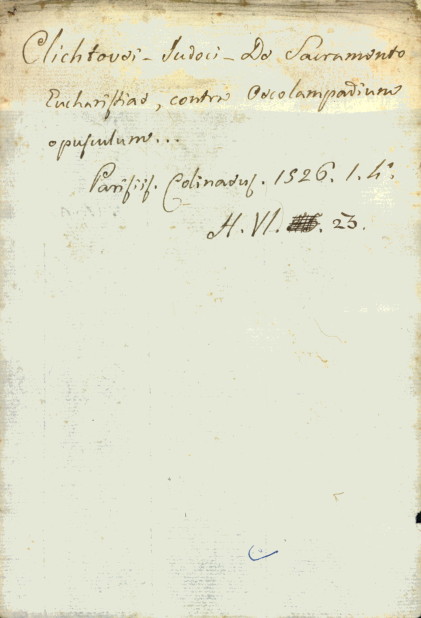 Clichtovei - Judoci - De Sacramento
Eucharistiae, contra Oecolampadium
opusculum...
Parisiis. Colinaeus. 1526. 1. 4º.
H. VI. 23.